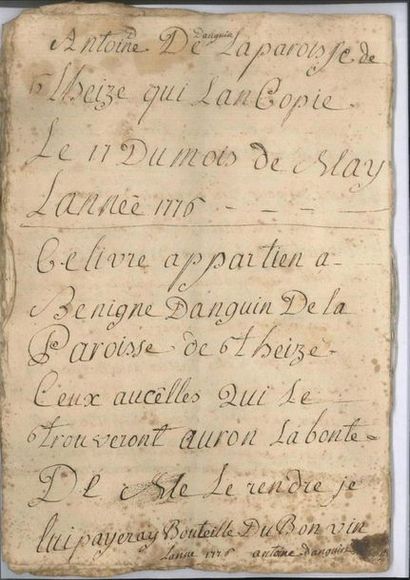 Antoine De danguin Laparoisse de
St heize qui Lan Copie
Le 11 Du mois de May
Lannée 1776 - - - -
Ce livre appartien a
Benigne Danguin De la
Paroisse de St heize
Ceux aucelles Qui Le
trouveront auron La bonte
De Me Le rendre je
lui payeray Bouteille Du Bon vin
Lanne 1776 antoine danguin